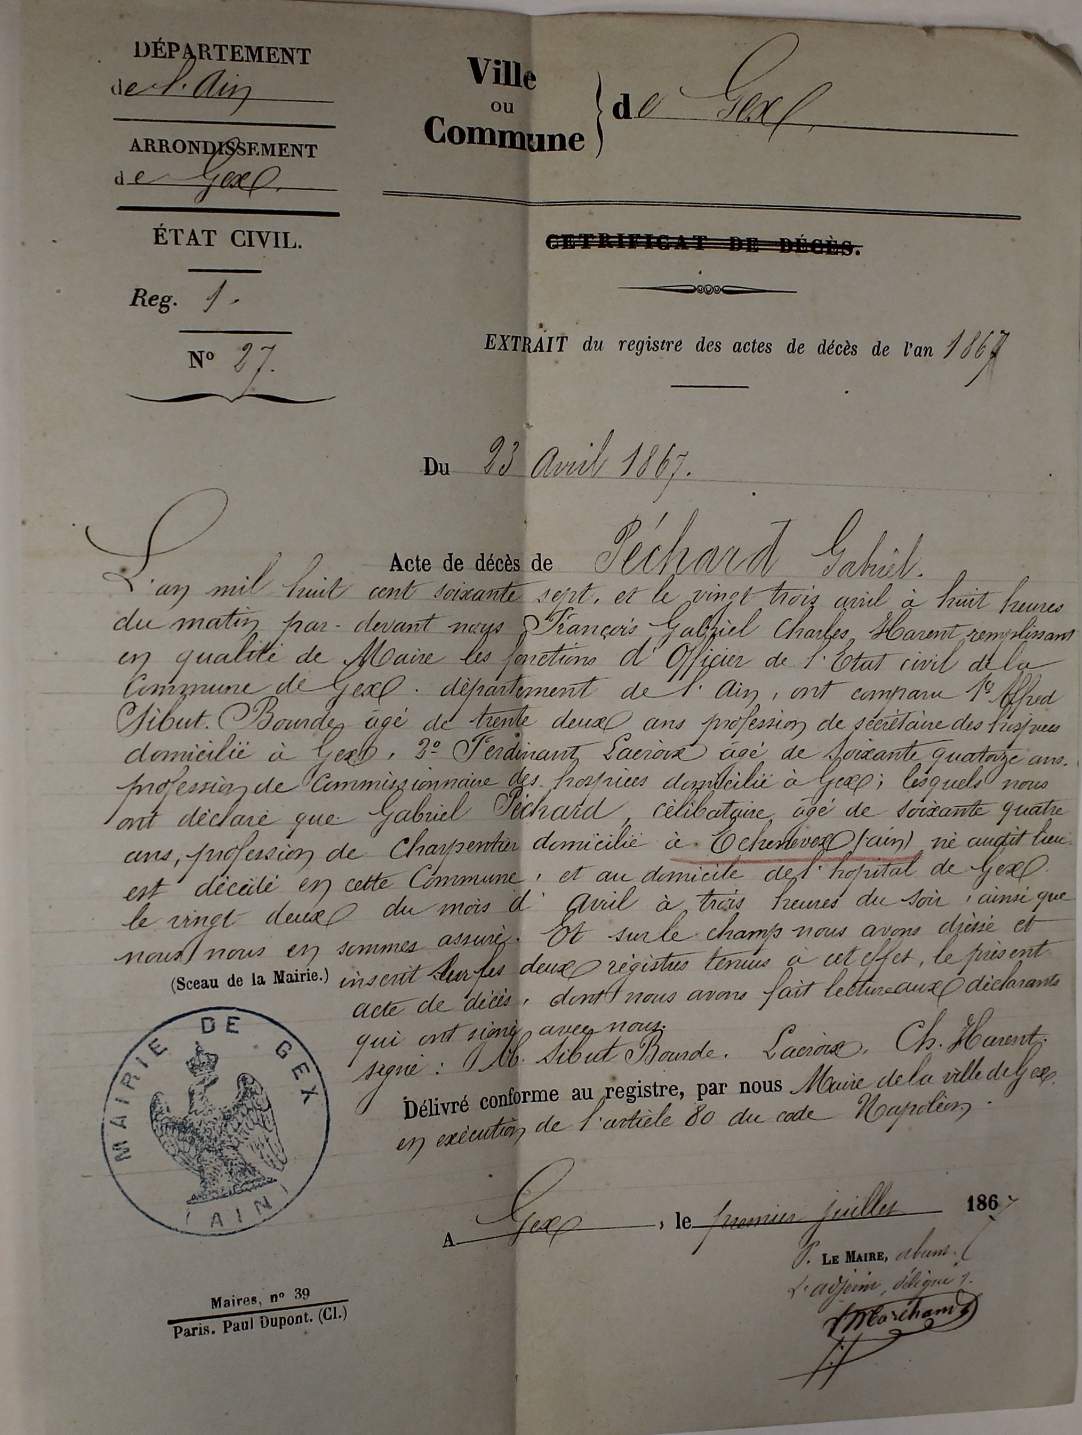 DÉPARTEMENT
de l'Ain
ARRONDISSEMENT
de Gex.
ÉTAT CIVIL.
Reg. 1.
N° 27.
Ville
ou
Commune
de Gex
CETRIFICAT DE DÉCÈS.
EXTRAIT du registre des actes de décès de l'an 1867
Du 23 Avril 1867.
Acte de décès de Péchard Gabriel.
L'an mil huit cent soixante sept, et le vingt trois avril à huit heures
du matin par-devant nous François Gabriel Charles Harent remplissant
en qualité de Maire les fonctions d'Officier de l'Etat civil de la
Commune de Gex. département de l'Ain, ont comparu 1° Alfred
Sibut. Bourde, âgé de trente deux ans profession de sécrétaire des hospices
domicilié à Gex, 2° Ferdinant Lacroix âgé de soixante quatorze ans.
profession de Commissionnaire des hospices domicilié à Gex; lesquels nous
ont déclaré que Gabriel Péchard, célibataire, âgé de soixante quatre
ans, profession de Charpentier domicilié à Echenevex (ain) né audit lieu
est décédé en cette Commune, et au domicile de l'hopital de Gex
le vingt deux du mois d'avril à trois heures du soir, ainsi que
nous nous en sommes assuré. Et sur le champ nous avons dressé et
inscrit sur les deux régistres tenus à cet effet, le présent
acte de décès, dont nous avons fait lecture aux déclarants
qui ont signé avec nous.
signé: Sibut Bourde. Lacroix. Ch. Harent.
(Sceau de la Mairie.)
MAIRIE DE GEX
(AIN)
Délivré conforme au registre, par nous Maire de la ville de Gex.
en exécution de l'article 80 du code Napoléon.
A Gex, le premier juillet 1867
P. LE MAIRE, absent
L'adjoint, délégué
Marchand
Maires, n° 39
Paris. Paul Dupont. (Cl.)